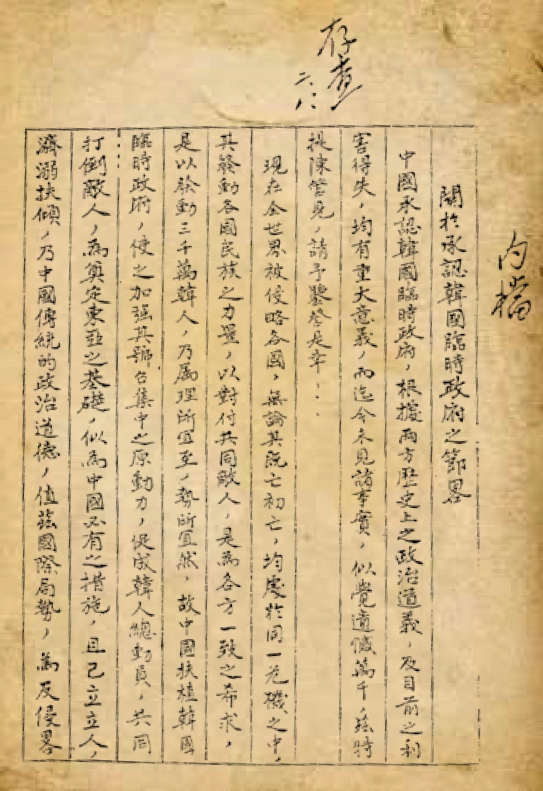 存查
二、八、
內檔
關於承認韓國臨時政府之節畧
中國承認韓國臨時政府，根據兩方歷史上之政治道義，及目前之利
害得失，均有重大意義，而迄今未見諸事實，似覺遺憾萬千，茲特
提陳管見，請予鑒詧是幸：
現在全世界被侵略各國，無論其既亡初亡，均處於同一危機之中，
其發動各國民族之力量，以對付共同敵人，是為各方一致之希求，
是以發動三千萬韓人，乃屬理所宜至，勢所宜然，故中國扶植韓國
臨時政府，使之加強其號召集中之原動力，促成韓人總動員，共同
打倒敵人，為奠定東亞之基礎，似為中國必有之措施，且己立立人，
濟溺扶傾，乃中國傳統的政治道德，值茲國際局勢，為反侵畧